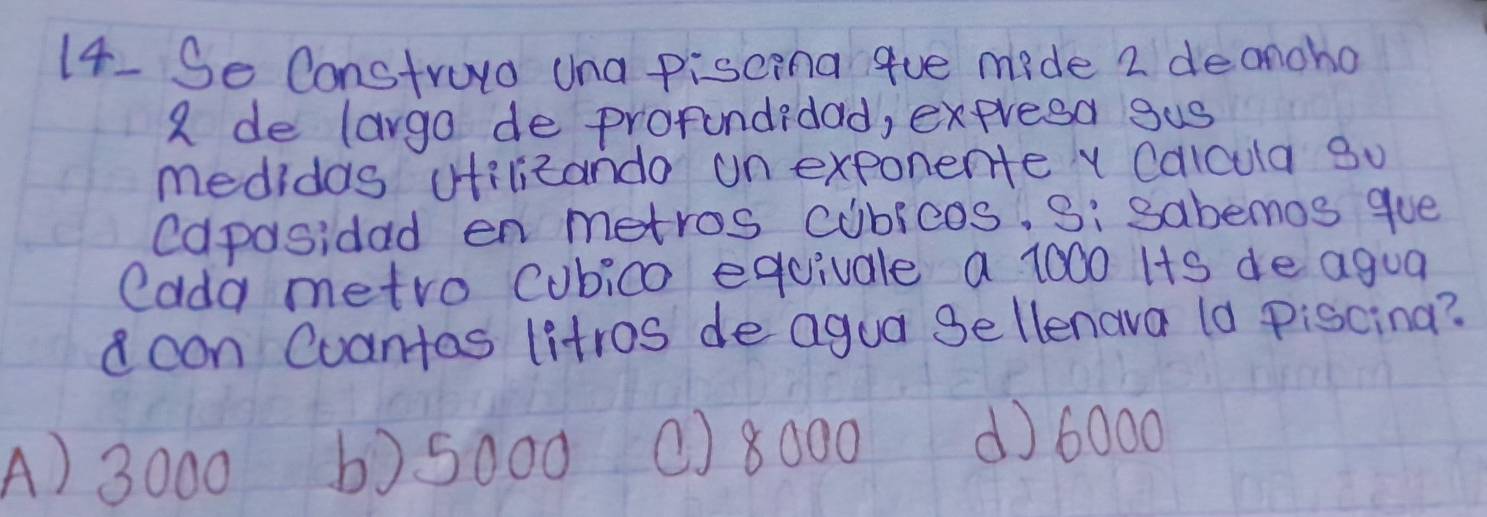 14- Se Construyo una piscina que mide 2 de ancho
2 de largo de profundidad, expresa sus
medidas utilizando un exponente y calcula su
capasidad en metros cúbicos. Si sabemos que
Cada metro cubico equivale a 1000 lts de agua
¿con Cuantos litros de agua se llenava la piscina?
A) 3000 b) 5000 c) 8000 d) 6000